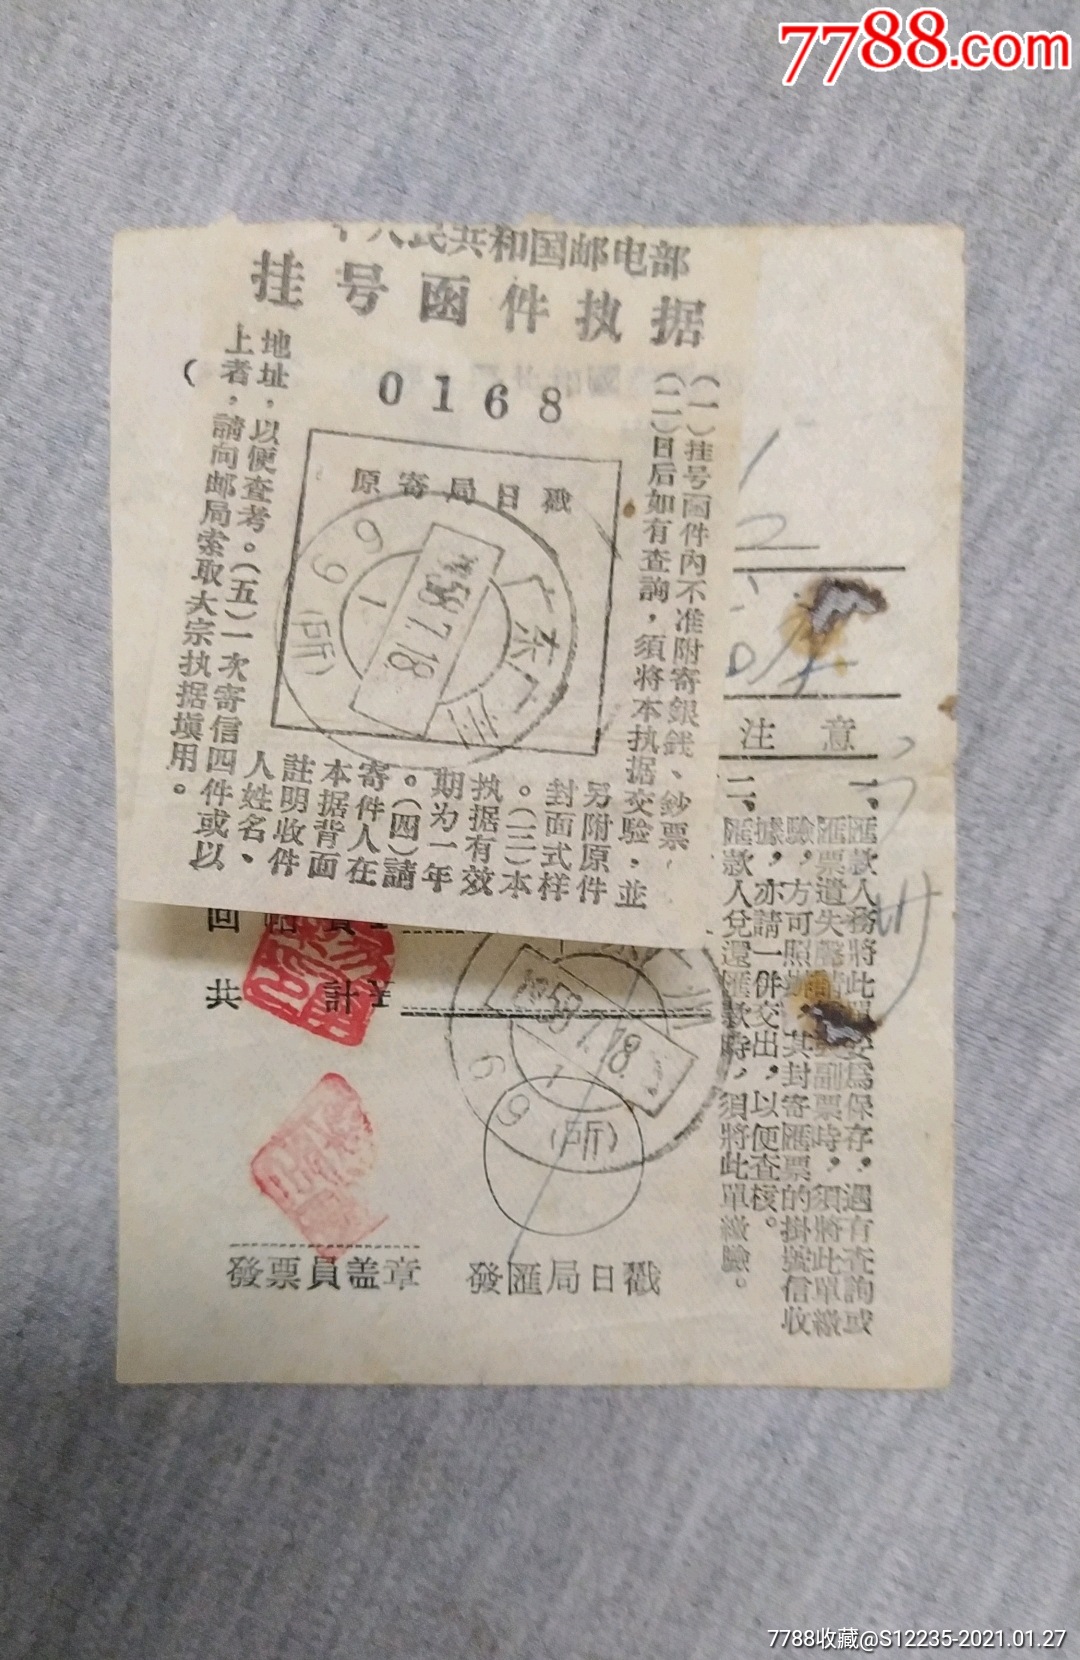 7788.com
人民共和国邮电部
挂号函件执据
0168
原寄局日戳
广东广州
1958.7.18
69
1
(所)
(一)挂号函件內不准附寄銀錢、鈔票
(二)日后如有查詢，須將本执据交驗，並
另附原件
封面式样
。(三)本
执据有效
期为一年
。(四)請
寄件人在
本据背面
註明收件
人姓名、
地址，以便查考。(五)一次寄信四件或以
上者，請向邮局索取大宗执据塡用。
注意
一、匯款人務將此單妥爲保存，遇有查詢或
匯票遺失
副票時，須將此單繳
驗，方可照
其封寄匯票的掛號信收
據，亦請一併交出，以便查核。
二、匯款人兌還匯款時，須將此單繳驗。
回帖費
共計￥
7.18
69
1
(所)
發票員盖章
發匯局日戳
7788收藏@S12235-2021.01.27